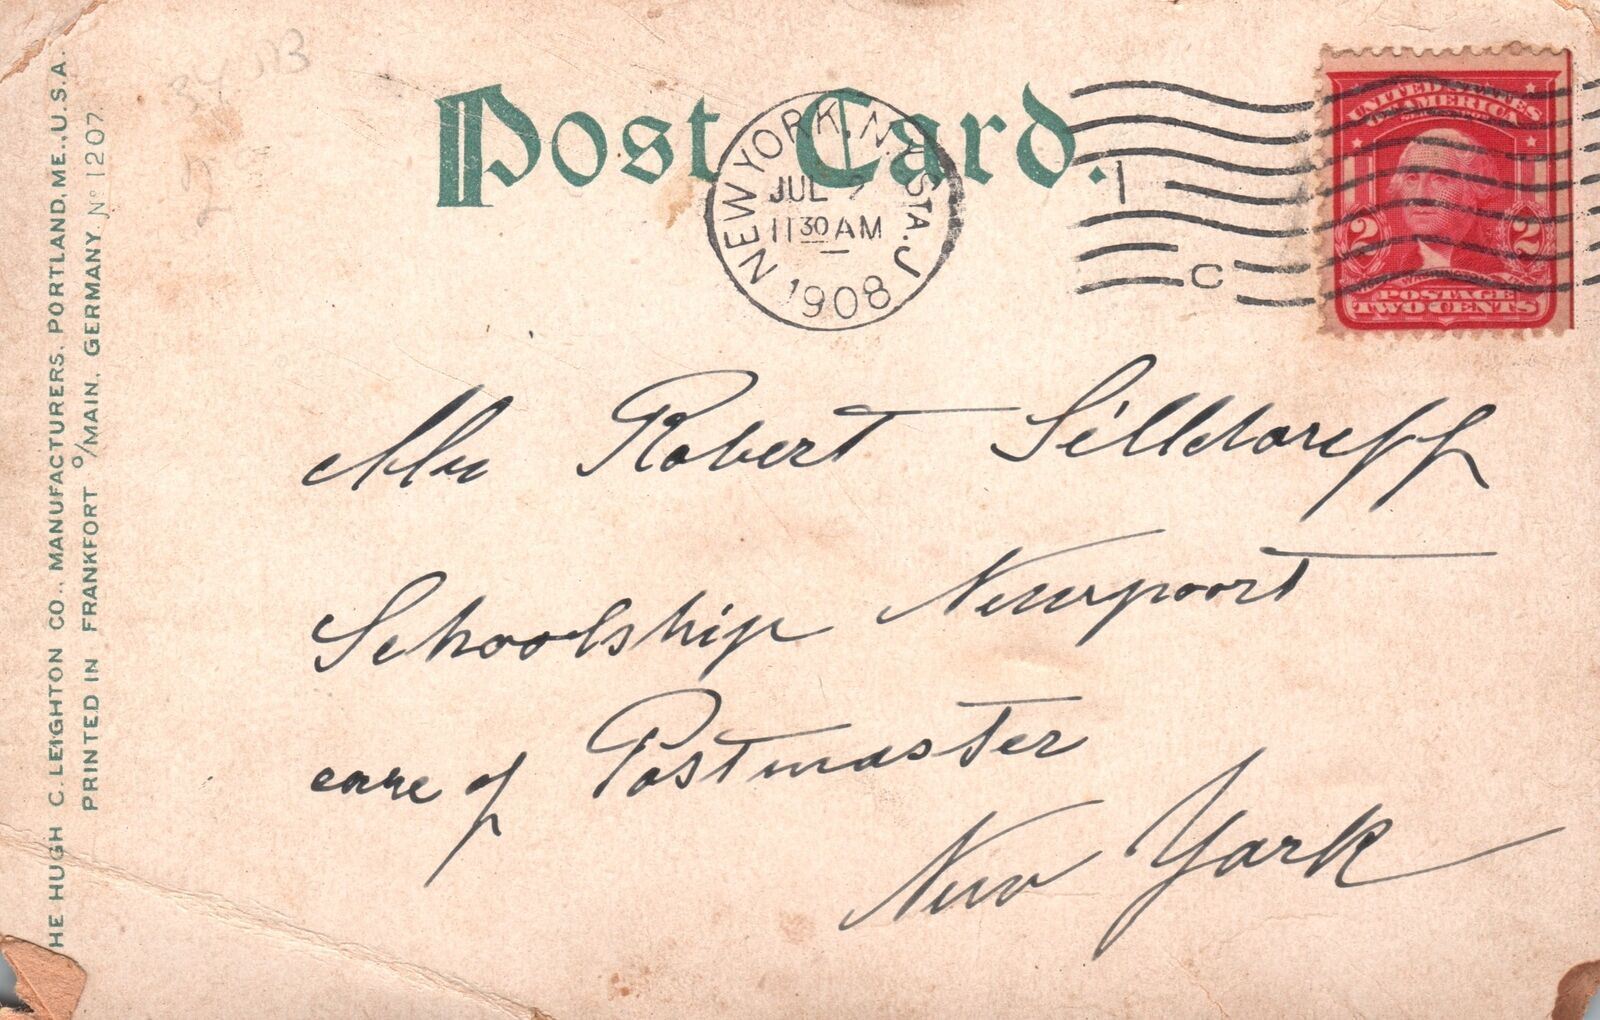 Post Card.
NEW YORK, N.Y. STA. J
JUL 7
11 30 AM
1908
1
C
UNITED STATES
OF AMERICA
2 2
WASHINGTON
POSTAGE
TWO CENTS
Mr Robert
Schoolship Newport
care of Postmaster
New York
HE HUGH C. LEIGHTON CO., MANUFACTURERS, PORTLAND, ME., U.S.A.
PRINTED IN FRANKFORT O/MAIN, GERMANY. No 1207.
2